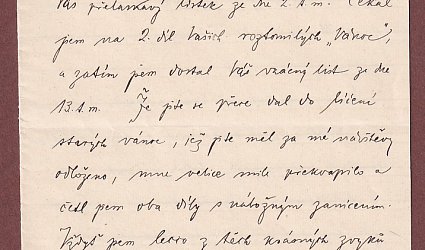 Váš přelaskavý lístek ze dne 2. t. m. Čekal
jsem na 2. díl Vašich roztomilých „Vánoc",
a zatím jsem dostal Váš vzácný list ze dne
13. t. m. Že jste se přece dal do líčení
starých vánoc, jež jste měl za mé návštěvy
odloženo, mne velice mile překvapilo a
četl jsem oba díly s náložným zanícením.
Když jsem leccos z těch krásných zvyků